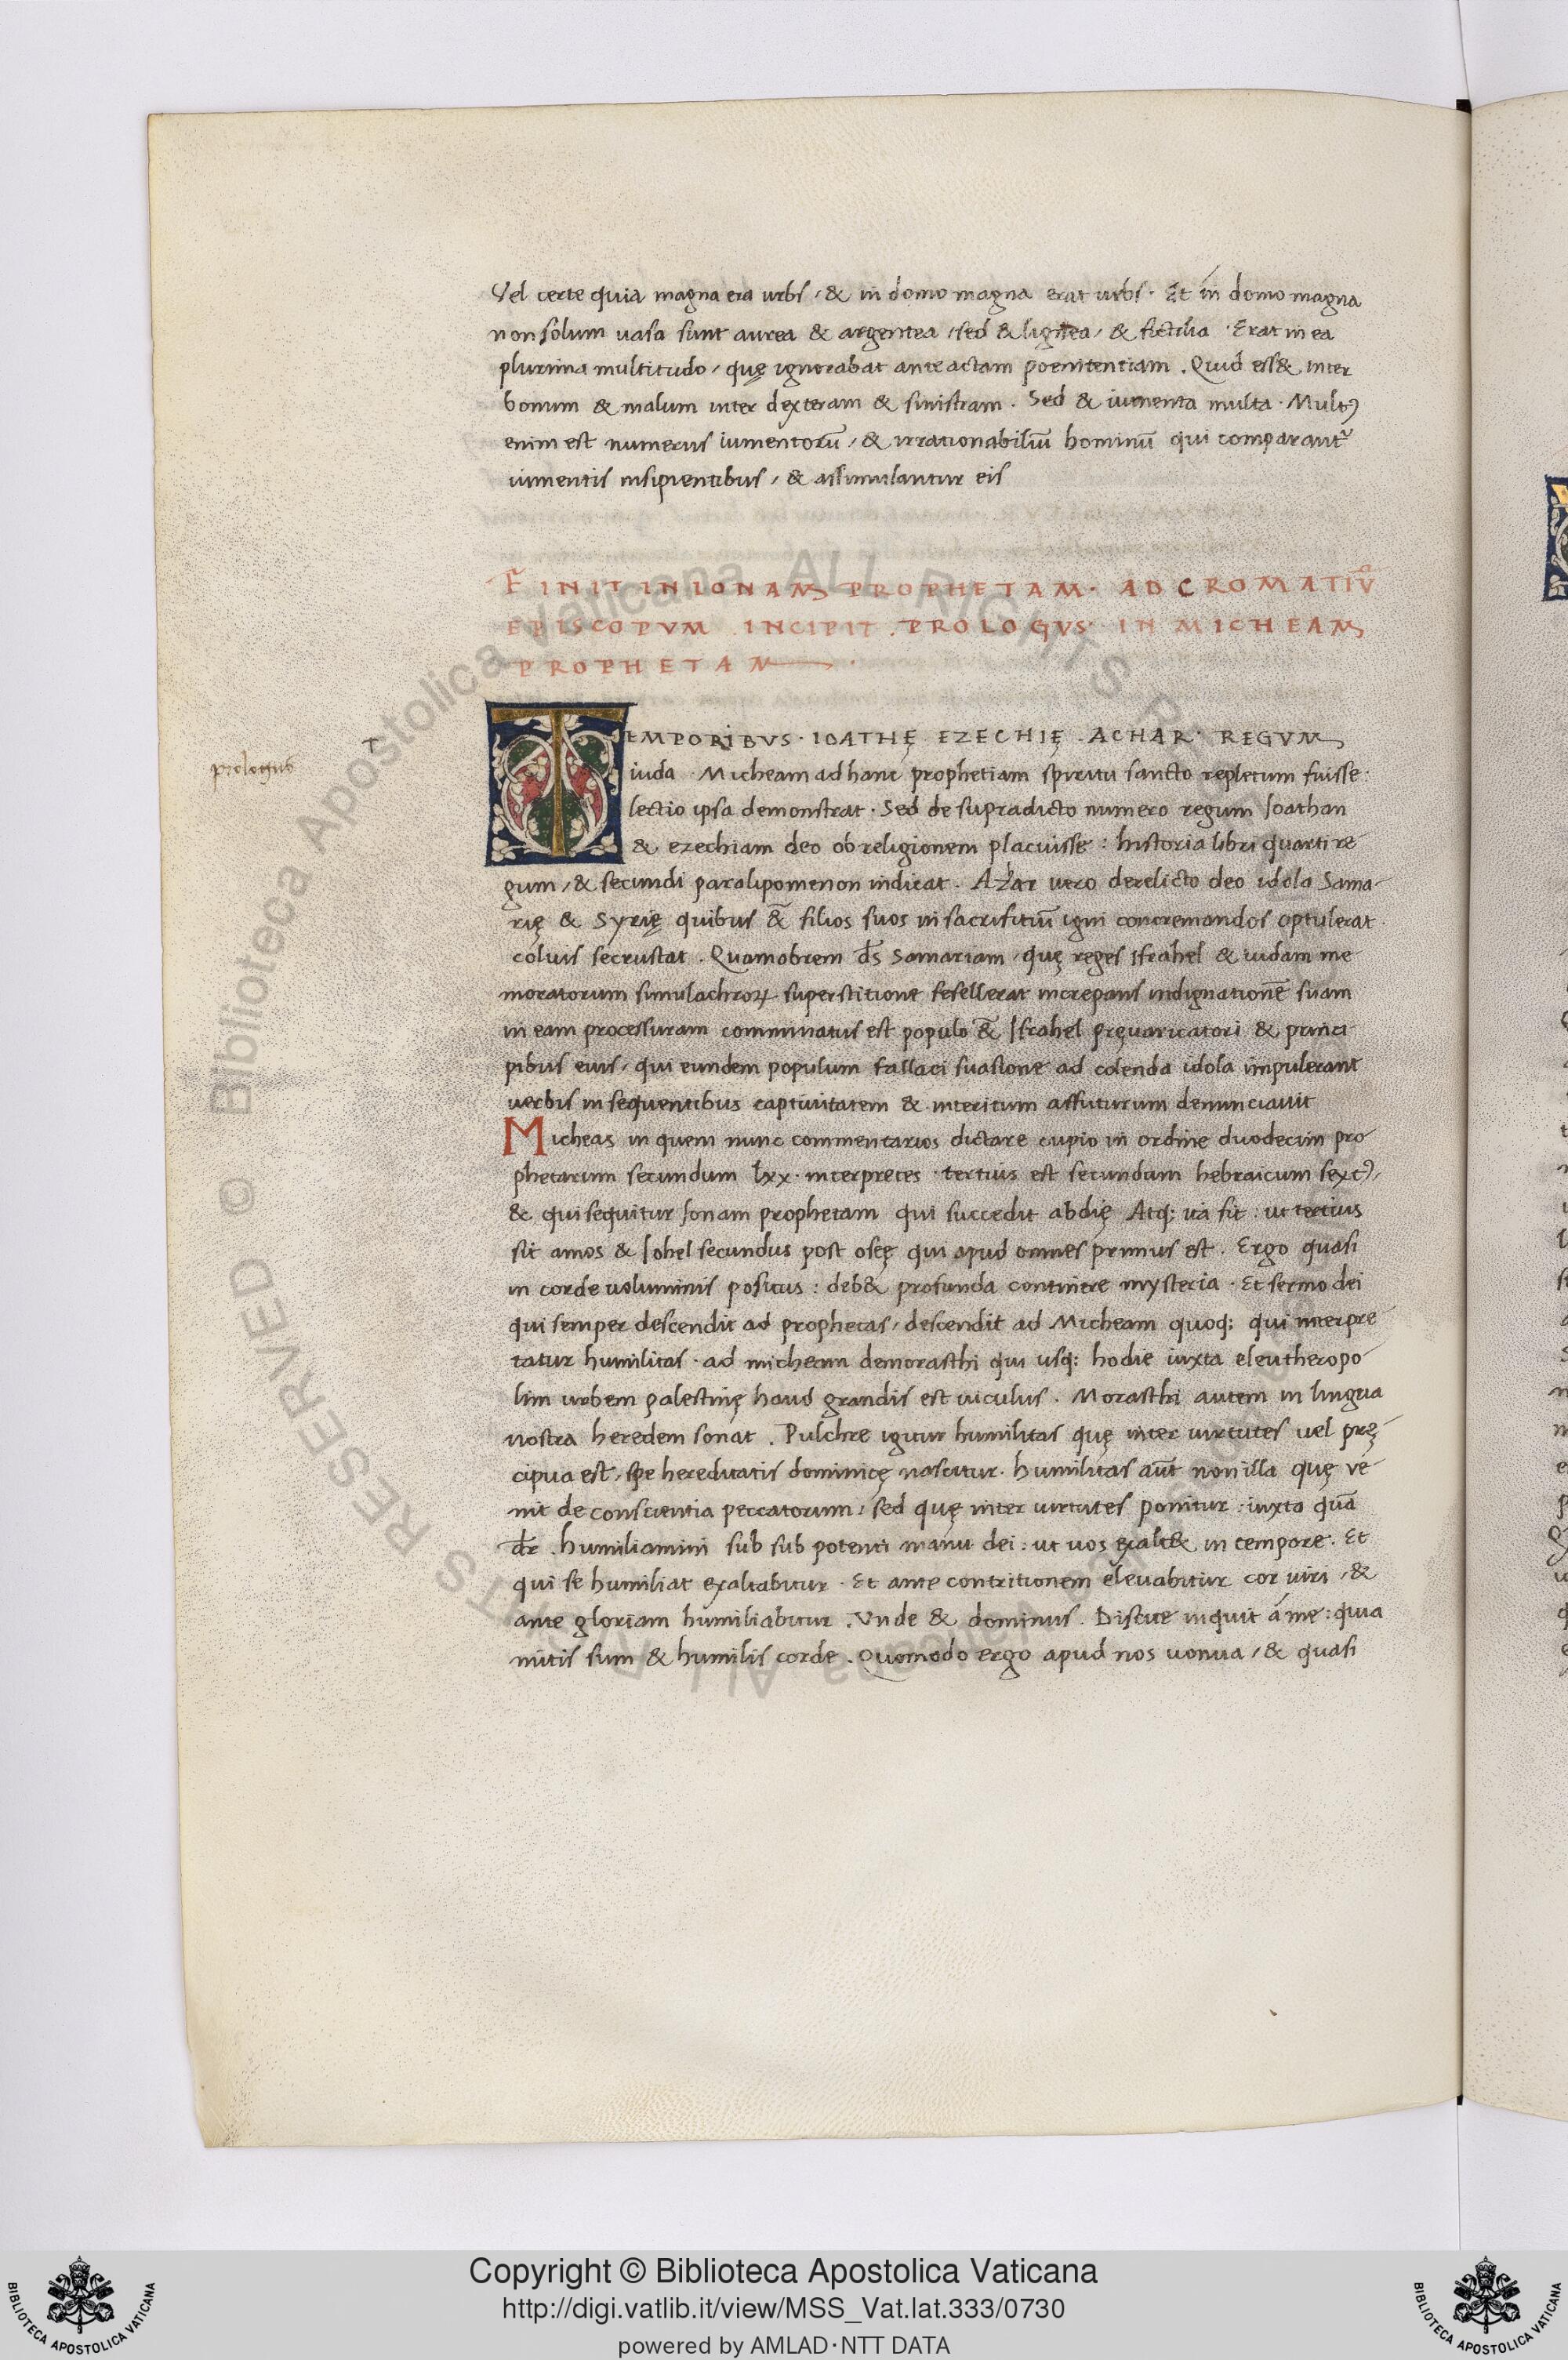 Vel certe quia magna era urbs, & in domo magna erat urbs. Et in domo magna
non solum uasa sunt aurea & argentea, sed & lignea, & fictilia. Erat in ea
plurima multitudo, quę ignorabat ante actam poenitentiam. Quid ess& inter
bonum & malum inter dexteram & sinistram. Sed & iumenta multa. Multꝰ
enim est numerus iumentorū, & irrationabiliū hominū qui comparant᷑
iumentis insipientibus, & assimulantur eis
FINIT IN IONAM PROPHETAM· AD CROMATIŪ
EPISCOPVM INCIPIT PROLOGVS· IN MICHEAM
PROPHETAM
prologus
T
TEMPORIBVS· IOATHĘ EZECHIĘ ACHAR· REGVM
iuda. Micheam ad hanc prophetiam spiritu sancto repletum fuisse·
lectio ipsa demonstrat. Sed de supradicto numero regum Ioathan
& ezechiam deo ob religionem placuisse: historia libri quarti re
gum, & secundi paralipomenon indicat. Azar vero derelicto deo idola Sama-
rię & Syrię quibus &̄ filios suos in sacrifitiū igni concremandos optulerat
coluis secrustat. Quamobrem d̄s Samariam, quę reges Israhel & iudam me
moratorum simulachroꝝ superstitione fefellerat increpans indignationē suam
in eam processuram comminatus est populo &̄ Israhel pręuaricatori & princi
pibus eius, qui eundem populum fallaci suasione ad colenda idola impulerant
uerbis in sequentibus captiuitatem & interitum affuturum denunciauit
Micheas in quem nunc commentarios dictare cupio in ordine duodecim pro
phetarum secundum lxx· interpretes· tertius est secundum hebraicum sextꝰ,
& qui sequitur Ionam prophetam qui succedit abdię Atq; ita fit: ut tertius
sit amos & Iohel secundus post oseę qui apud omnes primus est. Ergo quasi
in corde uoluminis positus: deb& profunda continere mysteria. Et sermo dei
qui semper descendit ad prophetas, descendit ad Micheam quoq; qui interpre
tatur humilitas· ad micheam demorasthi qui usq; hodie iuxta eleutheropo
lim urbem palestinę haud grandis est uiculus. Morasthi autem in lingua
nostra heredem sonat. Pulchre igitur humilitas quę inter uirtutes uel prę
cipua est, spe hereditatis dominicę nascitur. humilitas aūt non illa quę ve
nit de conscientia peccatorum, sed quę inter uirtutes ponitur: iuxta quā
dr̄. humiliamini sub sub potenti manu dei: ut uos exalt& in tempore. Et
qui se humiliat exaltabitur. Et ante contritionem eleuabitur cor uiri, &
ante gloriam humiliabitur. Vnde & dominus. Discite inquit á me: quia
mitis sum & humilis corde. Quomodo ergo apud nos uonua, & quasi
Copyright © Biblioteca Apostolica Vaticana
http://digi.vatlib.it/view/MSS_Vat.lat.333/0730
powered by AMLAD·NTT DATA
BIBLIOTECA APOSTOLICA VATICANA
BIBLIOTECA APOSTOLICA VATICANA
© Biblioteca Apostolica Vaticana ALL RIGHTS RESERVED